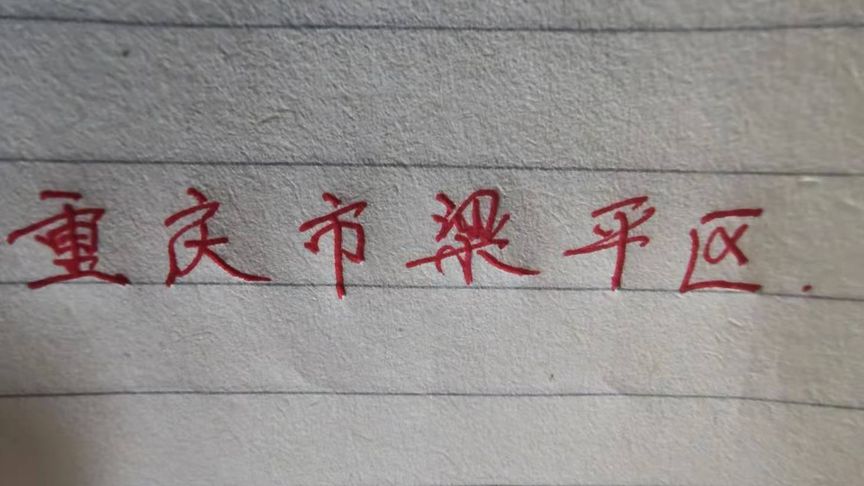 重庆市梁平区.